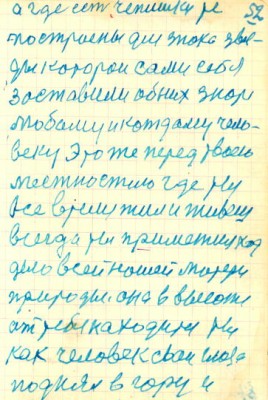 а где есть чепишки не
52
построены для знока звез-
ды которой сами себя
заставили об них знои
любому и котдому чело-
веку Это же перед твоею
местностию где мы
все время жили и живем
всегда мы приметил ход
дело всей нашей матери
природы она в высоте
от тебя находит мы
как человек свои глаза
поднял в гору и